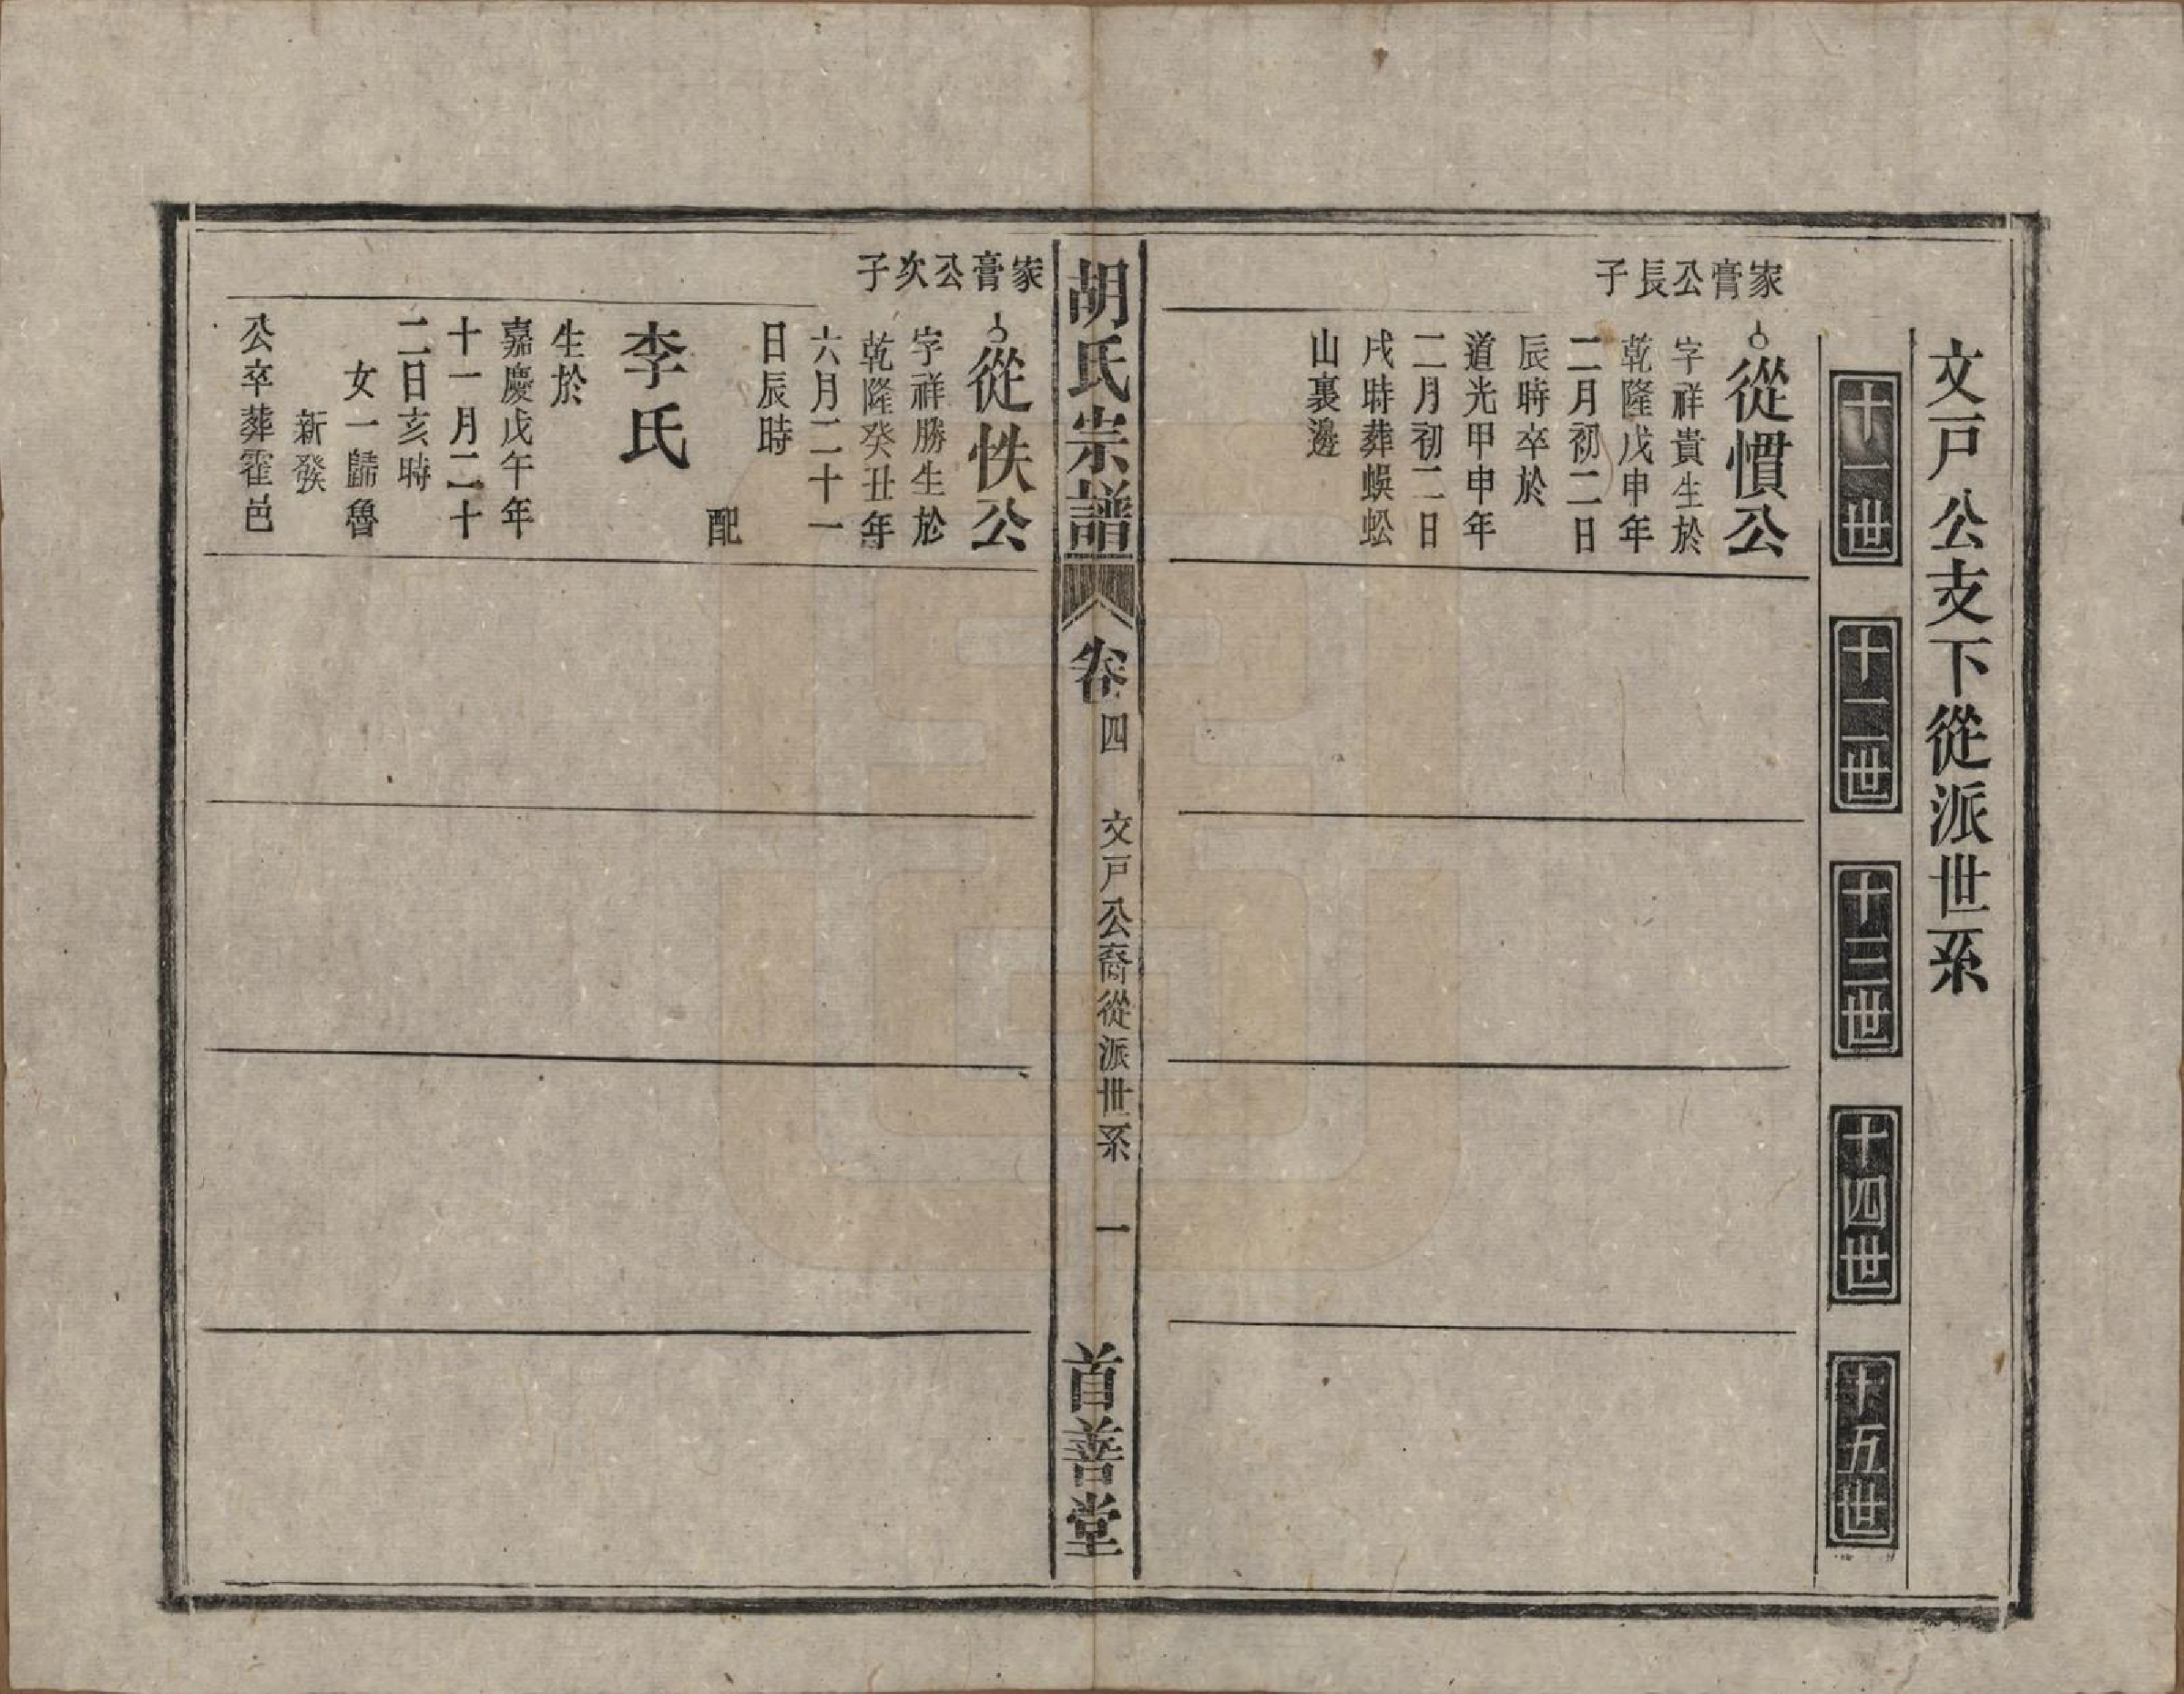 文戸公支下從派世系
十一世
十二世
十三世
十四世
十五世
家膏公長子
從慣公
字祥貴生於
乾隆戊申年
二月初二日
辰時卒於
道光甲申年
二月初二日
戌時葬蜈蚣
山裏邊
胡氏宗譜
卷四
文戸公裔從派世系
一
首善堂
家膏公次子
從怢公
字祥勝生於
乾隆癸丑年
六月二十一
日辰時
配
李氏
生於
嘉慶戊午年
十一月二十
二日亥時
女一歸魯
新發
公卒葬霍邑